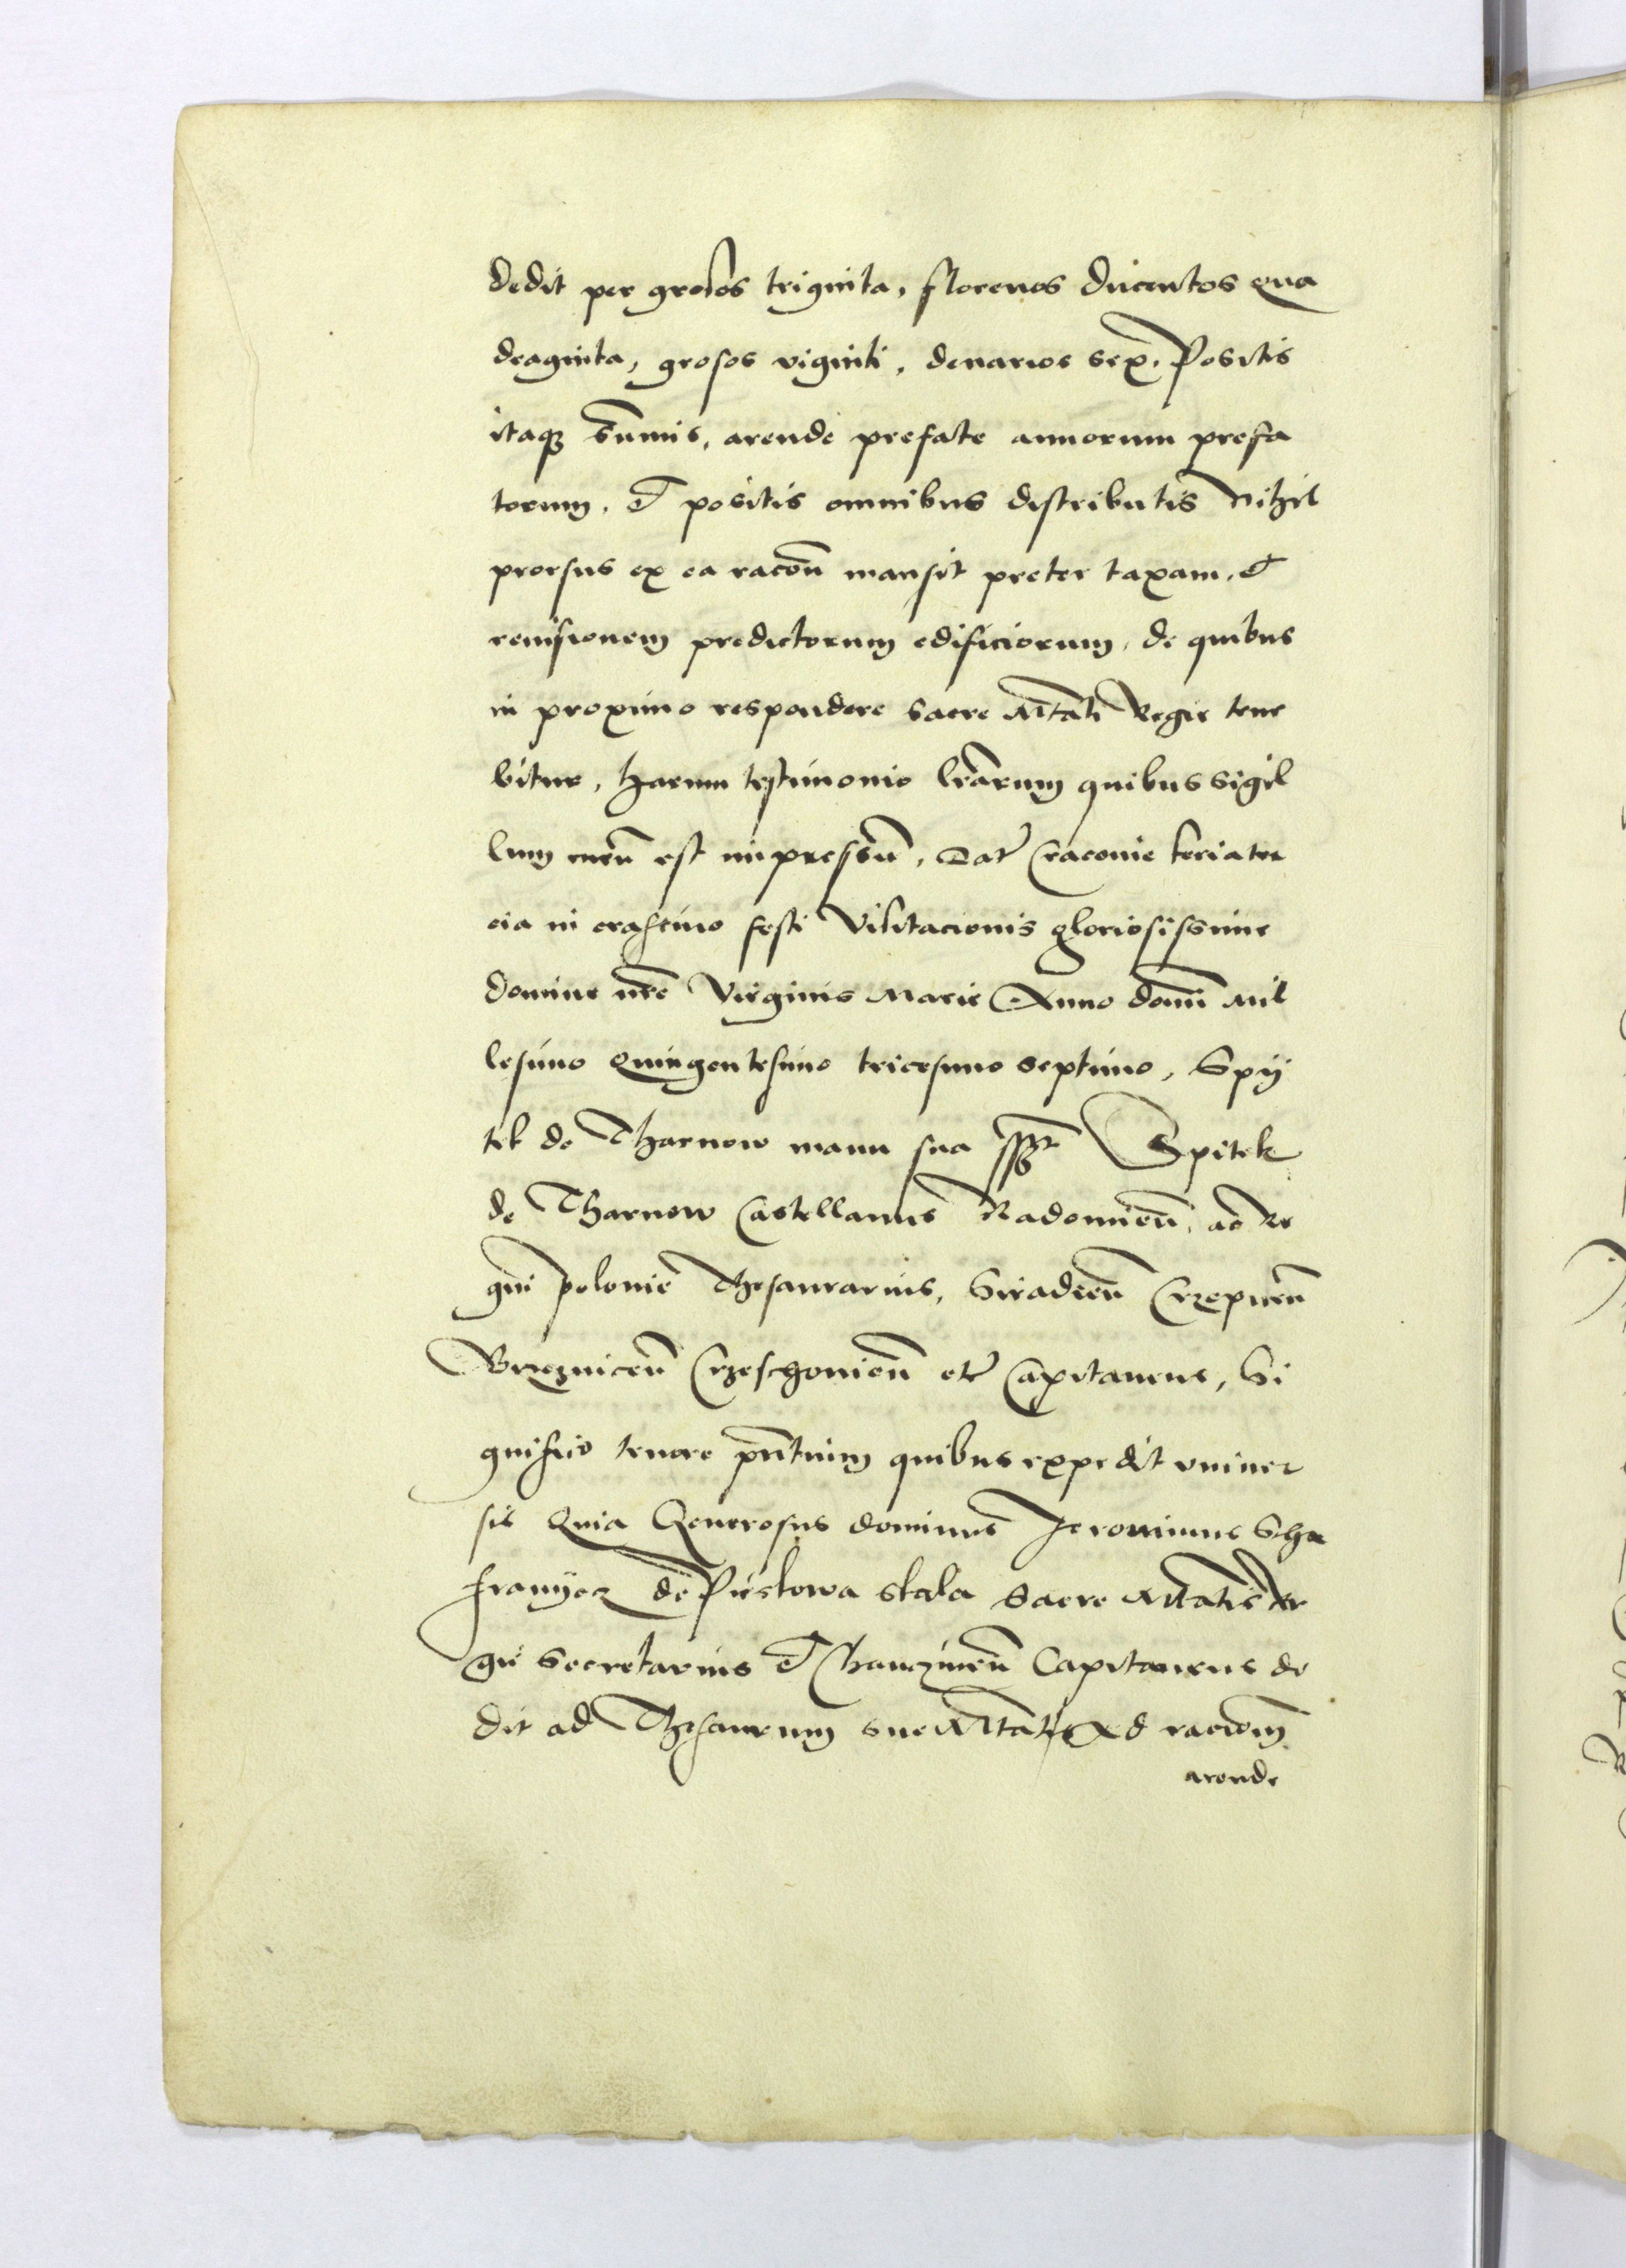 dedit per grosos triginta, florenos ducentos qua
draginta, grosos viginti, denarios sex, Positis
itaq; sum̄is, arende prefate annorum prefa
torum, et positis omnibus distributis nihil
prorsus ex ea racōn mansit preter taxam, et
remisionem predictorum edificiorum, de quibus
in proximo respondere Sacre Mtāti Regie tene
bitur, harum testimonio lrārum quibus Sigil
lum meū est impressū, Dat̄ Cracovie feria ter
cia in crastino festi Visitacionis gloriosissime
domine nrē Virginis Marie Anno domī Mil
lesimo Quingentesimo tricesimo septimo, Spÿ
tek de Tharnow manu sua sszt Spitek
de Tharnow Castellanus Radomieñ, ac Re
gni Polonie Thesaurarius, Siradieñ Crzepiceñ
Brzezniceñ Crzeschovieñ etc̄ Capitaneus, Si
gnifico tenore pn̄tium quibus expedit vniuer
sis Quia Generosus dominus Jeronimus Scha
franÿecz de Pieskowa skala Sacre Mtatis Re
gie Secretarius et Chanczineñ Capitaneus de
dit ad Thesaurum sue Mtatis Ad racionē
arende